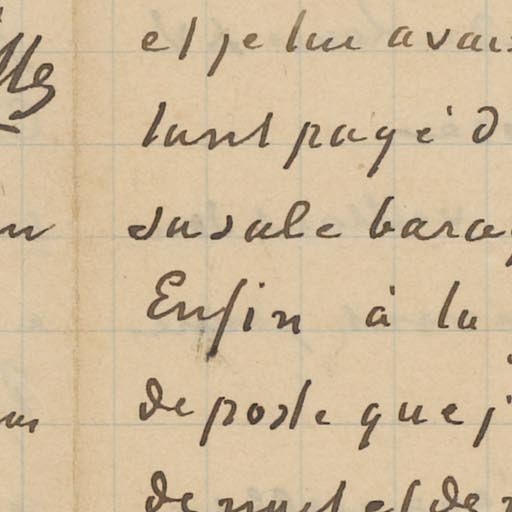 et je lui avais
tant payé d
sa sale bara
Enfin à la
de poste que j'
de nuit et de